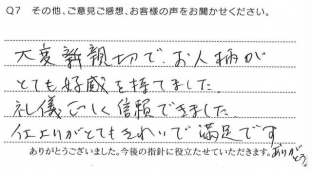 Q7 その他、ご意見ご感想、お客様の声をお聞かせください。
大変親切で、お人柄が
とても好感を持てました。
礼儀正しく信頼できました。
仕上りがとてもきれいで満足です
ありがとう。
ありがとうございました。今後の指針に役立たせていただきます。